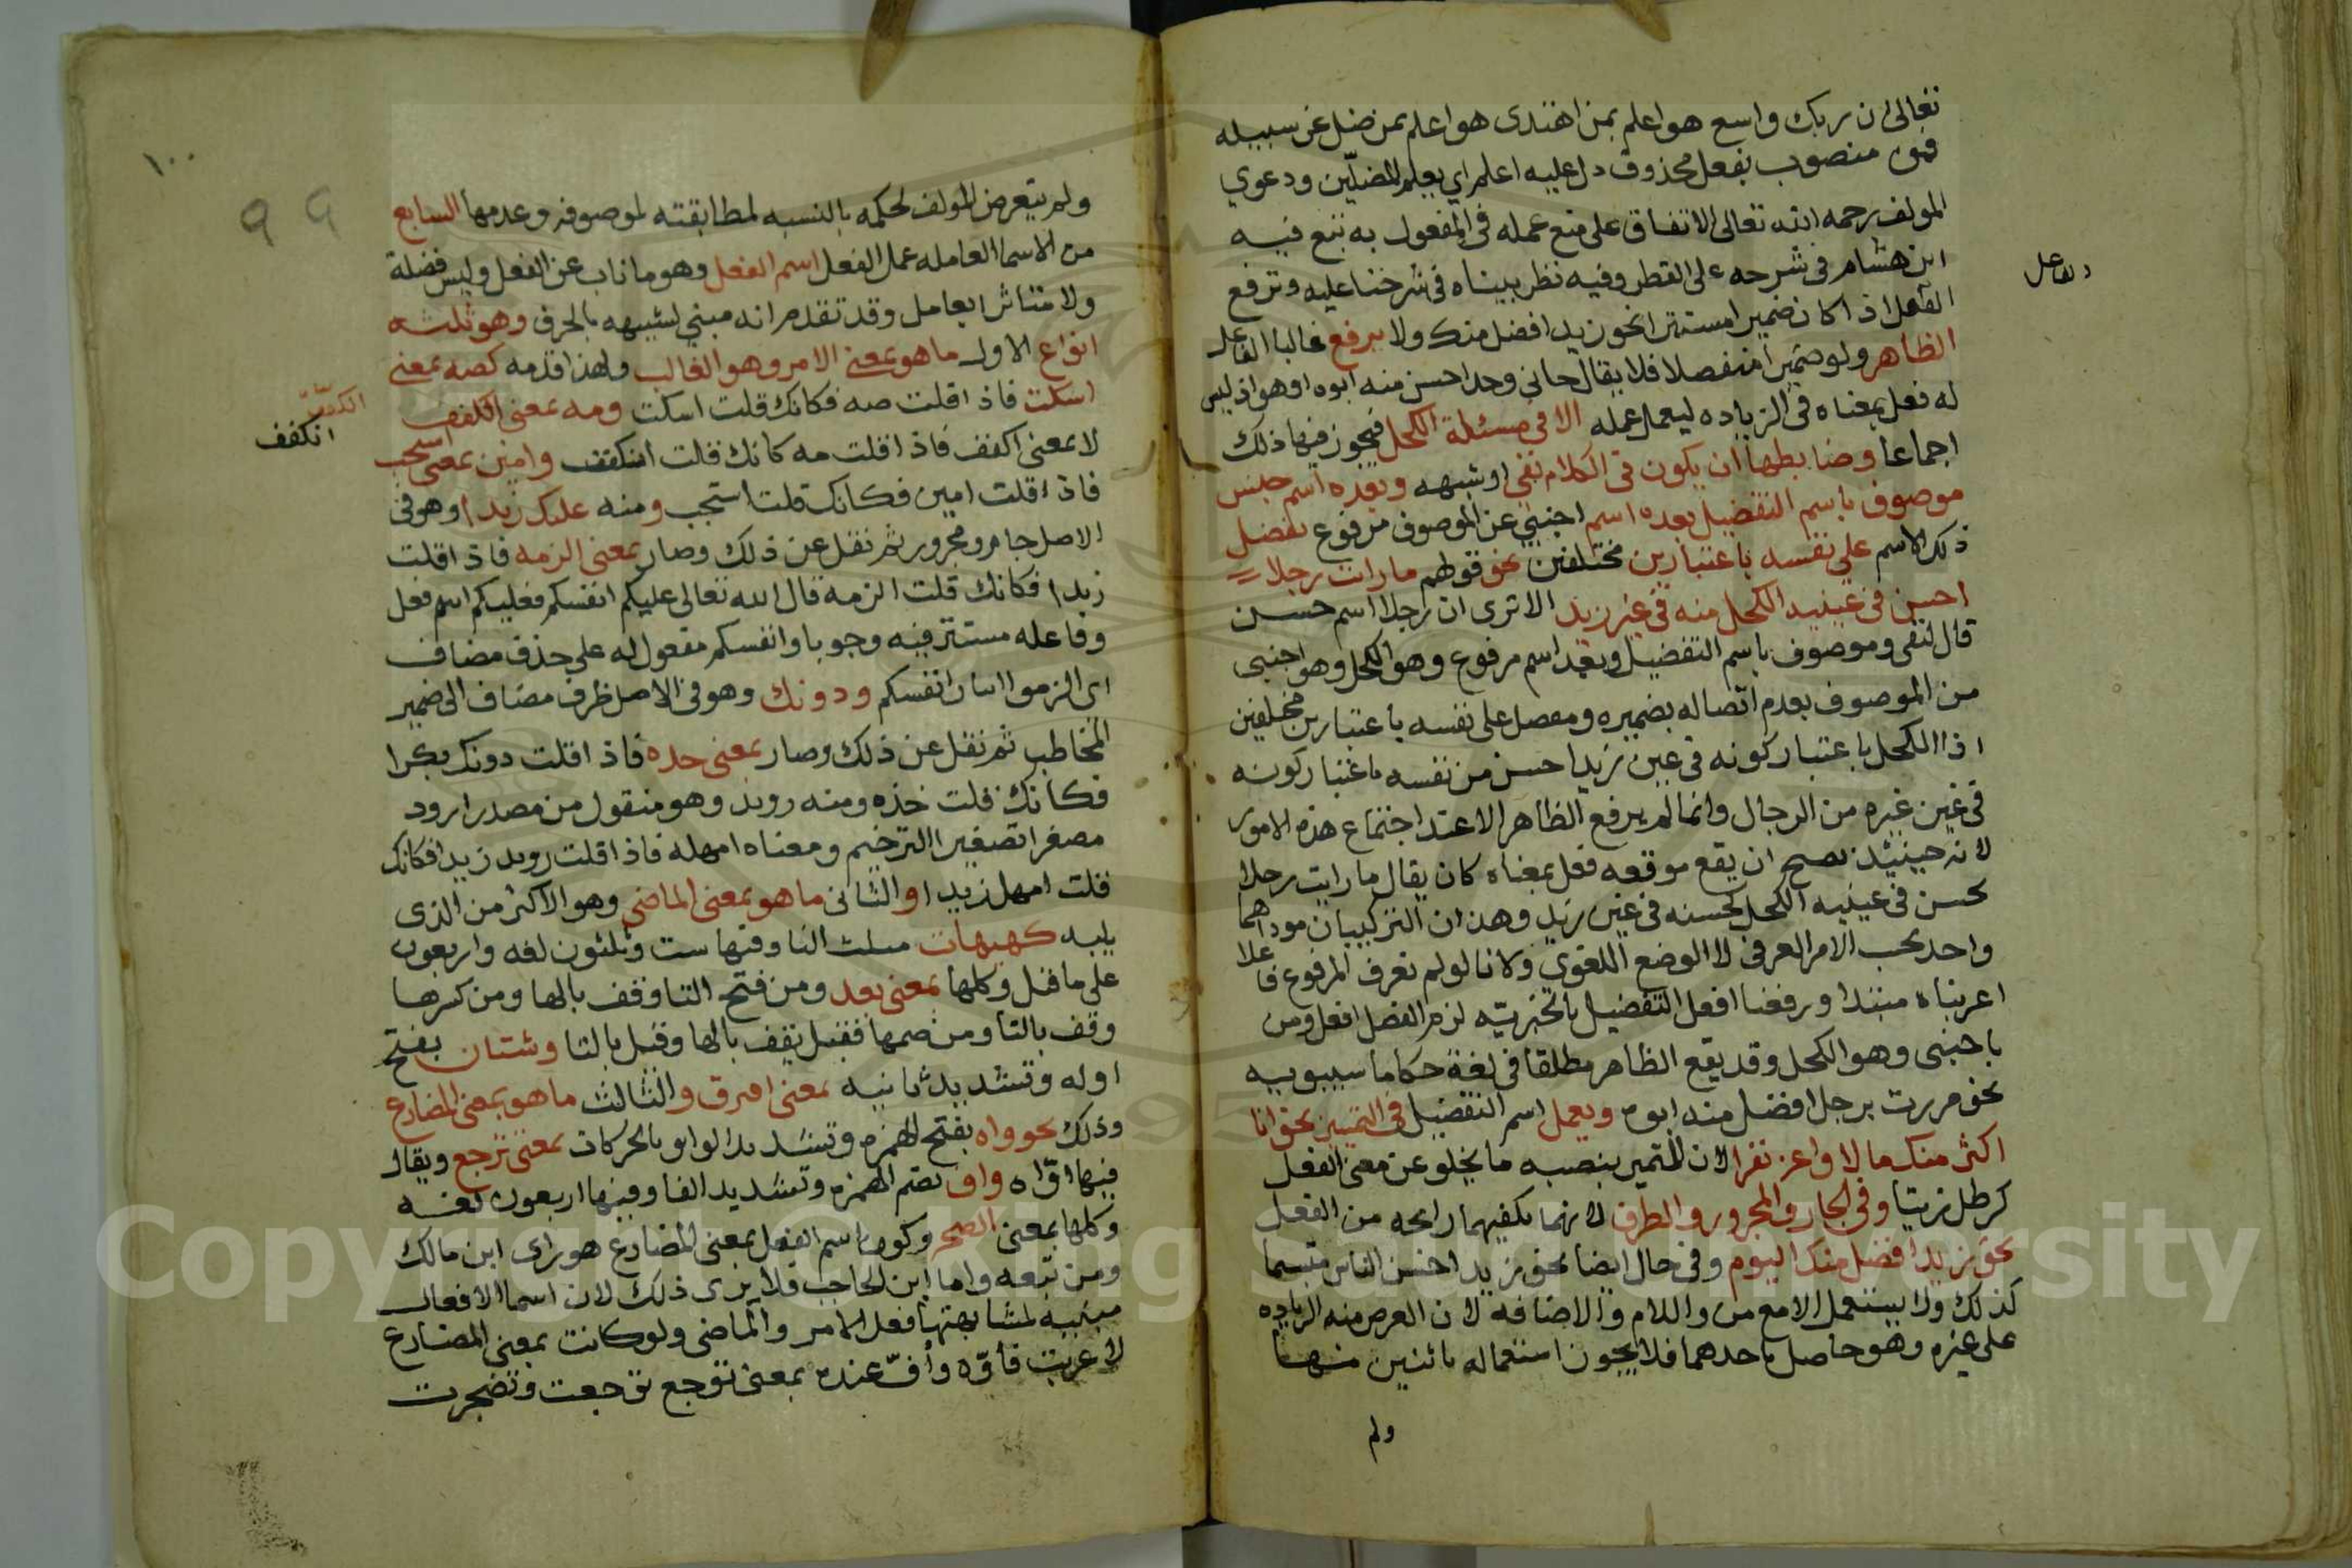 تعالى ان ربك واسع هو اعلم بمن اهتدى هو اعلم بمن ضل عن سبيله
فمن منصوب بفعل محذوف دل عليه اعلم اي يعلم المضلين ودعوي
المولف رحمه الله تعالى الاتفاق على منع عمله في المفعول به تبع فيه
ابن هشام في شرحه على القطر وفيه نظر بيناه في شرحنا عليه وترفع
الفاعل اذا كان ضميرا مستترا نحو زيد افضل منك ولا يرفع غالبا الفاعل
الظاهر ولو ضميرا منفصلا فلا يقال جاني وحدا احسن منه ابوه او هو اذ ليس
له فعل بمعناه في الزياده ليعمل عمله الا في مسئلة الكحل فيجوز فيها ذلك
اجماعا وضابطها ان يكون في الكلام نفي او شبهه وبعده اسم جنس
موصوف باسم التفضيل بعده اسم اجنبي عن الموصوف مرفوع يفضل
ذلك الاسم على نفسه باعتبارين مختلفين نحو قولهم ما رات رجلا
احسن في عينيه الكحل منه في عين زيد الا ترى ان رجلا اسم حسن
قال لنفي وموصوف باسم التفضيل وبعد اسم مرفوع وهو الكحل وهو اجنبي
من الموصوف بعدم اتصاله بضميره ومفصل على نفسه باعتبارين مختلفين
اذا الكحل باعتبار كونه في عين زيد احسن من نفسه باعتبار كونه
في عين غيره من الرجال وانما لم يرفع الظاهر الا عند اجتماع هذه الامور
لانه حينيئذ يصح ان يقع موقعه فعل بمعناه كان يقال ما رايت رجلا
يحسن في عينيه الكحل كحسنه في عين زيد وهذان التركيبان موداهما
واحد بحب الامر العرفي لا الوضع اللغوي ولانا لو لم نعرف المرفوع فاعلا
اعربناه مبتدا ورفعنا افعل التفضيل بالخبريّه لزم الفصل افعل ومن
باجنبي وهو الكحل وقد يقع الظاهر مطلقا في لغة حكاها سيبويه
نحو مررت برجل افضل منه ابوه ويعمل اسم التفضيل في التمييز نحو انا
اكثر منك مالا واعز نفرا لان التمير ينصبه ما يخلو عن معنى الفعل
كرطل زيتا وفي الجار والمجرور والظرف لانهما يكفيهما رايحه من الفعل
نحو زيد افضل منك اليوم وفي حال ايضا نحو زيد احسن الناس متبسما
كذلك ولا يستعمل الا مع من واللام والاضافه لان الغرض منه الزياده
على غيره وهو حاصل باحدهما فلا يجوز استعماله باثنين منها
ولم
والفاعل
١٠٠
99
ولم يتعرض المولف لحكمه بالنسبه لمطابقته لموصوفه وعدمها السابع
من الاسما العامله عمل الفعل اسم الفعل وهو ما ناب عن الفعل وليس فضلة
ولا متاثرا بعامل وقد تقدم انه مبني لشبيهه بالحرف وهو ثلثه
انواع الاول ما هو بمعنى الامر وهو الغالب ولهذا قدمه كصه بمعنى
اسكت فاذا قلت صه فكانك قلت اسكت ومه بمعنى اكفف
لا بمعنى اكفف فاذا قلت مه كانك قلت انكفف وامين بمعنى استجب
فاذا قلت امين فكانك قلت استجب ومنه عليك زيدا وهو في
الاصل جار ومجرور ثم نقل عن ذلك وصار بمعنى الزمه فاذا قلت
زيدا فكانك قلت الزمه قال الله تعالى عليكم انفسكم فعليكم اسم فعل
وفاعله مستتر فيه وجوبا وانفسكم مفعول له على حذف مضاف
اي الزموا اشان انفسكم ودونك وهو في الاصل ظرف مضاف الى ضمير
المخاطب ثم نقل عن ذلك وصار بمعنى خذه فاذا قلت دونك بكرا
فكانك قلت خذه ومنه رويد وهو منقول من مصدر ارود
مصغرا تصغير الترخيم ومعناه امهله فاذا قلت رويد زيدا فكانك
قلت امهل زيدا والثاني ما هو بمعنى الماضي وهو الاكثر من الذي
يليه كهيهات مثلث التا وفيها ست وثلثون لغه واربعون
على ما قيل وكلها بمعنى بعد ومن فتح التا وقف بالها ومن كسرها
وقف بالتا ومن ضمها فقيل يقف بالها وقيل بالتا وشتان بفتح
اوله وتشديد ثانيه بمعنى افترق والثالث ما هو بمعنى المضارع
وذلك نحو واه بفتح الهمزه وتشديد الواو بالحركات بمعنى توجع ويقال
فيها اوّاه واف بضم الهمزه وتشديد الفا وفيها اربعون لغه
وكلها بمعنى اتضجر وكونها اسم الفعل بمعنى المضارع هو راى ابن مالك
ومن تبعه واما ابن الحاجب فلا يرى ذلك لان اسما الافعال
مبنيه لمشابهتها فعل الامر والماضي ولو كانت بمعنى المضارع
لاعربت فاوّه وأفّ عنده بمعنى توجع توجعت وتضجرت
انكفف
Copyright © King Saud University